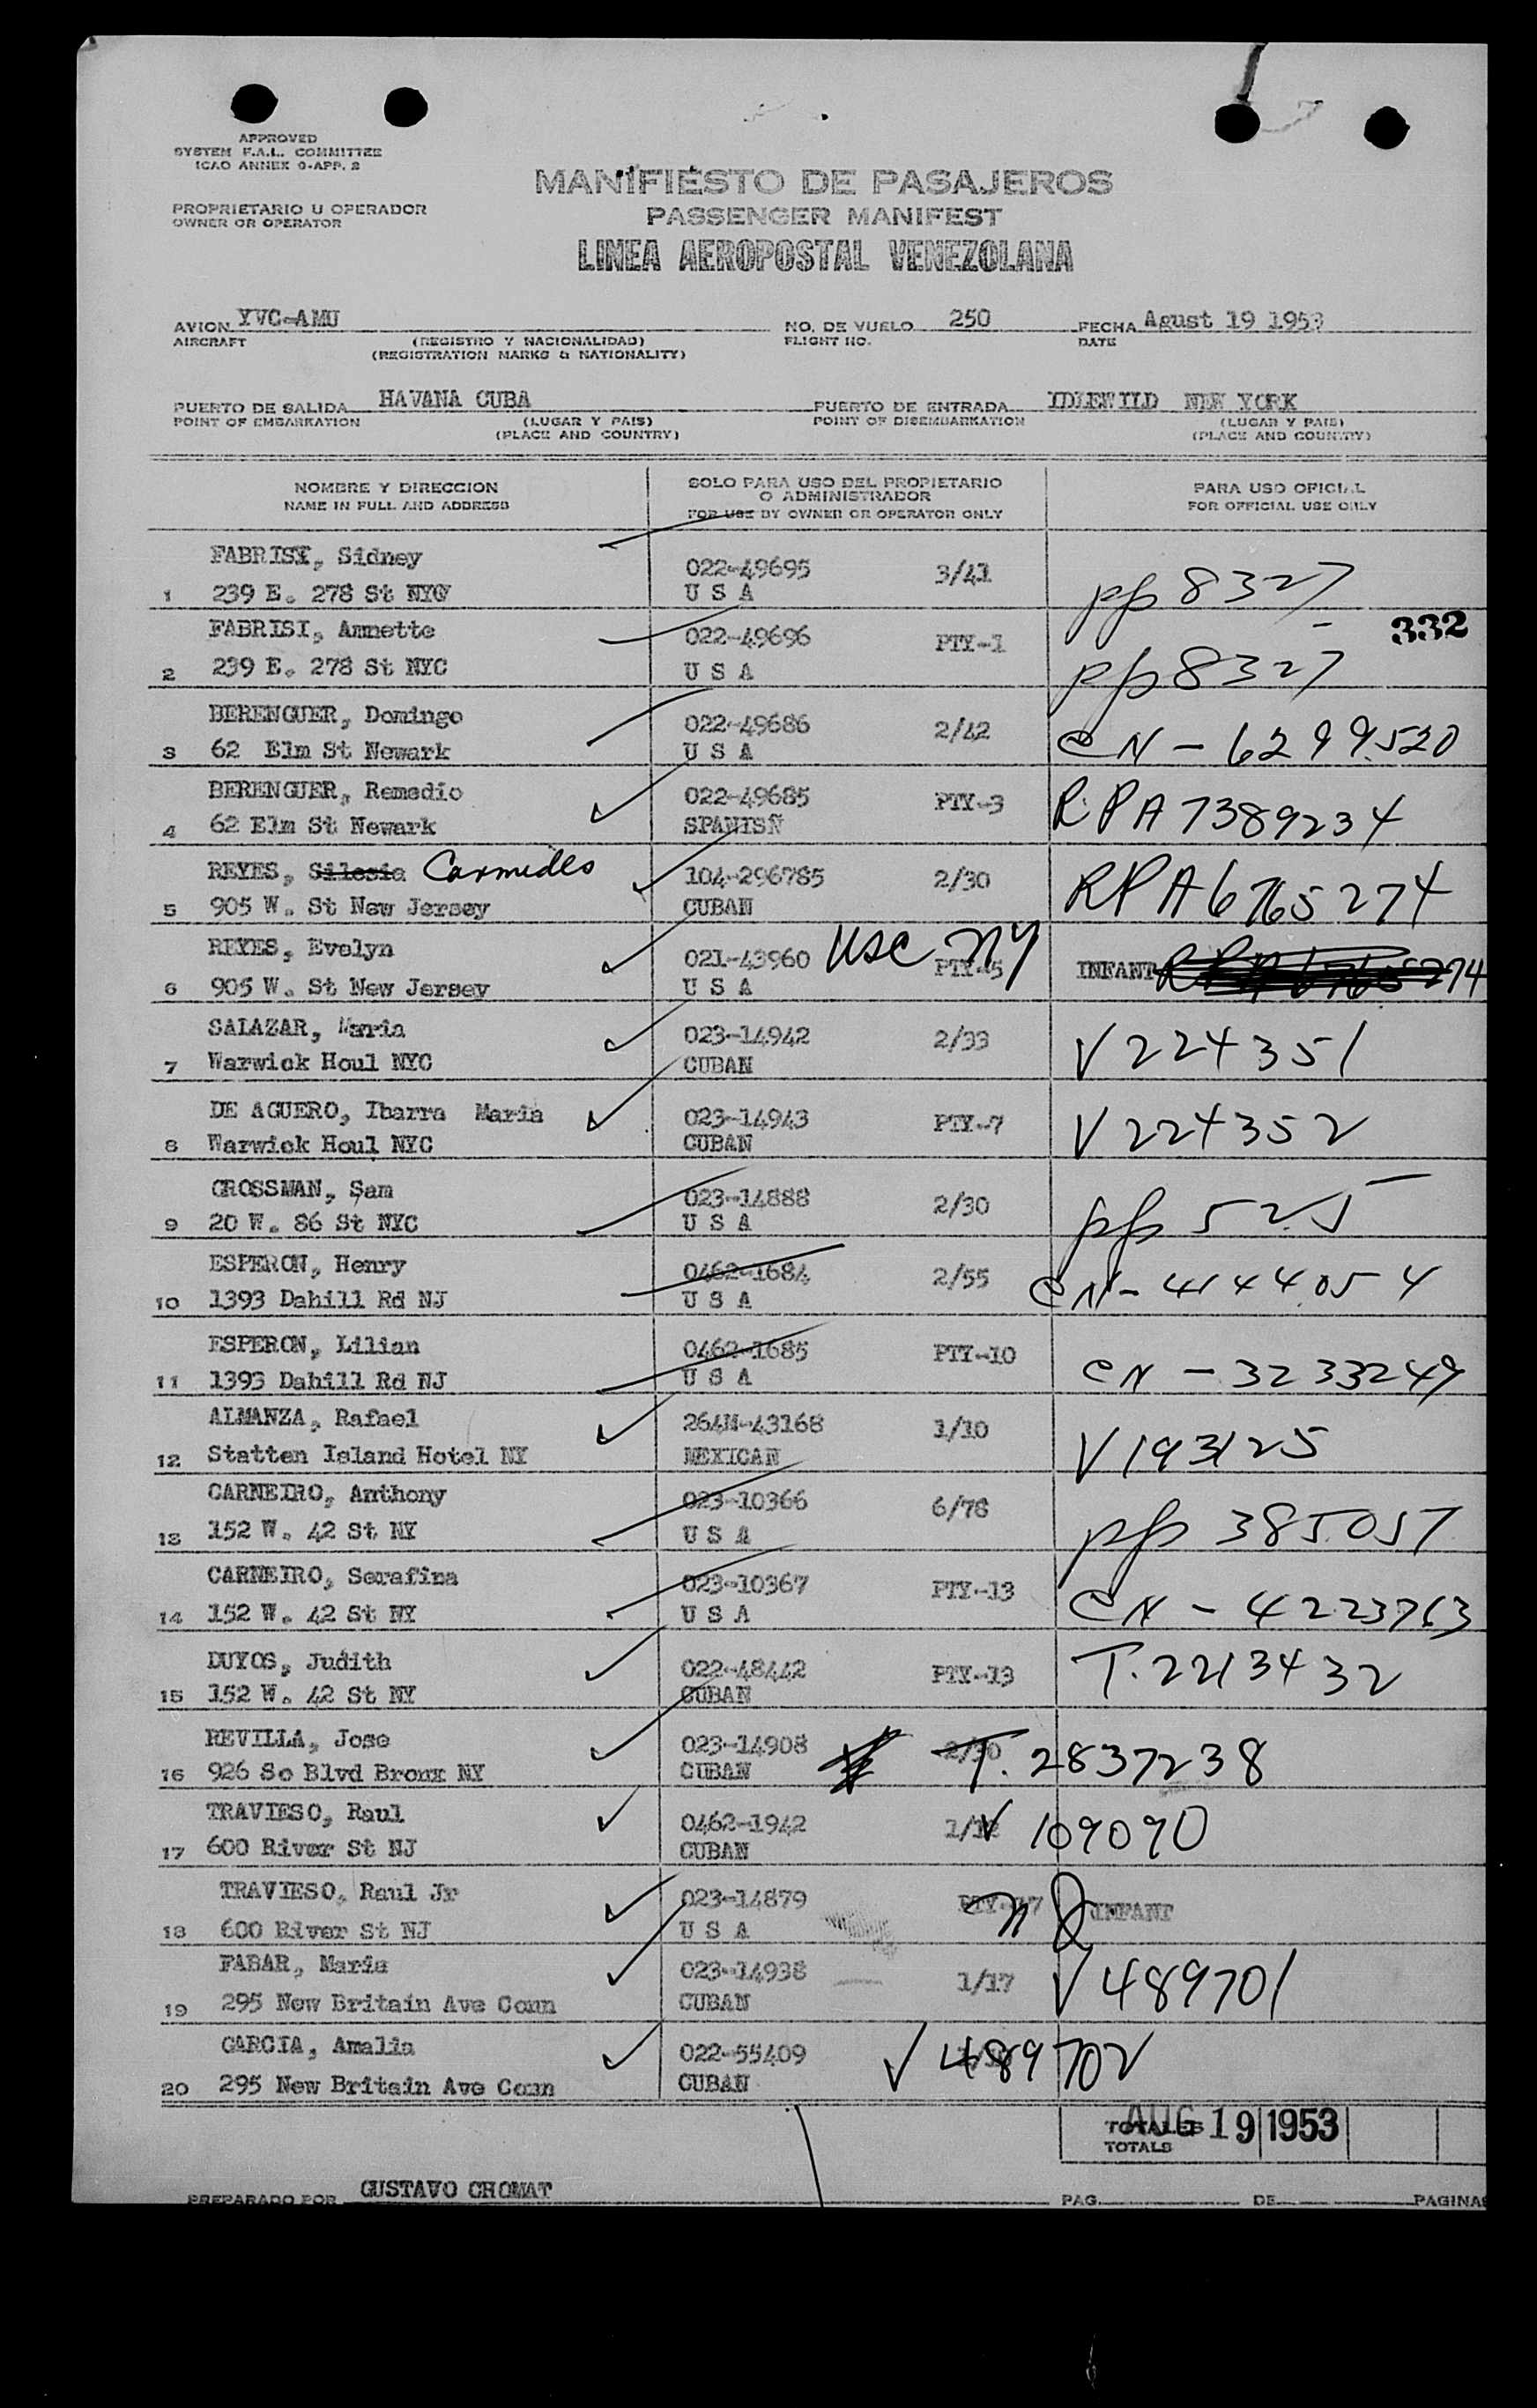 APPROVED
SYSTEM F.A.L. COMMITTEE
ICAO ANNEX 9-APP. 2
MANIFIESTO DE PASAJEROS
PROPRIETARIO U OPERADOR
OWNER OR OPERATOR
PASSENGER MANIFEST
LINEA AEROPOSTAL VENEZOLANA
AVION YVC-AMU NO. DE VUELO 250 FECHA Agust 19 1953
AIRCRAFT (REGISTRO Y NACIONALIDAD) FLIGHT NO. DATE
(REGISTRATION MARKS & NATIONALITY)
PUERTO DE SALIDA HAVANA CUBA PUERTO DE ENTRADA IDLEWILD NEW YORK
POINT OF EMBARKATION (LUGAR Y PAIS) POINT OF DISEMBARKATION (LUGAR Y PAIS)
(PLACE AND COUNTRY) (PLACE AND COUNTRY)
NOMBRE Y DIRECCION SOLO PARA USO DEL PROPIETARIO O ADMINISTRADOR PARA USO OFICIAL
NAME IN FULL AND ADDRESS FOR USE BY OWNER OR OPERATOR ONLY FOR OFFICIAL USE ONLY
FABRISY, Sidney 022-49695 3/41 pp 8327
1 239 E. 278 St NYC U S A
332
FABRISI, Annette 022-49696 PTY-1 pp 8327
2 239 E. 278 St NYC U S A
BERENGUER, Domingo 022-49686 2/42 CN - 6299520
3 62 Elm St Newark U S A
BERENGUER, Remedio 022-49685 PTY-3 RPA 7389234
4 62 Elm St Newark SPANISÑ
REYES, Silesia Carmides 104-296785 2/30 RPA 6765274
5 905 W. St New Jersey CUBAN
REYES, Evelyn 021-43960 USC NY PTY-5 INFANT RPA 6765274
6 905 W. St New Jersey U S A
SALAZAR, Maria 023-14942 2/33 V 224351
7 Warwick Houl NYC CUBAN
DE AGUERO, Ibarra Maria 023-14943 PTY-7 V 224352
8 Warwick Houl NYC CUBAN
GROSSMAN, Sam 023-14888 2/30 pp 525
9 20 W. 86 St NYC U S A
ESPERON, Henry 0462-1684 2/55 CN - 4144054
10 1393 Dahill Rd NJ U S A
ESPERON, Lilian 0462-1685 PTY-10 CN - 3233249
11 1393 Dahill Rd NJ U S A
ALMANZA, Rafael 264M-43168 1/10 V 193125
12 Statten Island Hotel NY MEXICAN
CARNEIRO, Anthony 023-10366 6/78 pp 385057
13 152 W. 42 St NY U S A
CARNEIRO, Serafina 023-10367 PTY-13 CN - 4223763
14 152 W. 42 St NY U S A
DUYOS, Judith 022-48442 PTY-13 T. 2213432
15 152 W. 42 St NY CUBAN
REVILLA, Jose 023-14908 2/30 T. 2837238
16 926 So Blvd Bronx NY CUBAN
TRAVIESO, Raul 0462-1942 V 109090
17 600 River St NJ CUBAN
TRAVIESO, Raul Jr 023-14879 PTY-17 INFANT
18 600 River St NJ U S A
FABAR, Maria 023-14938 1/17 V 489701
19 295 New Britain Ave Conn CUBAN
GARCIA, Amalia 022-55409 V 489702
20 295 New Britain Ave Conn CUBAN
TOTALES AUG 19 1953
TOTALS
PREPARADO POR GUSTAVO CHOMAT PAG. DE PAGINAS